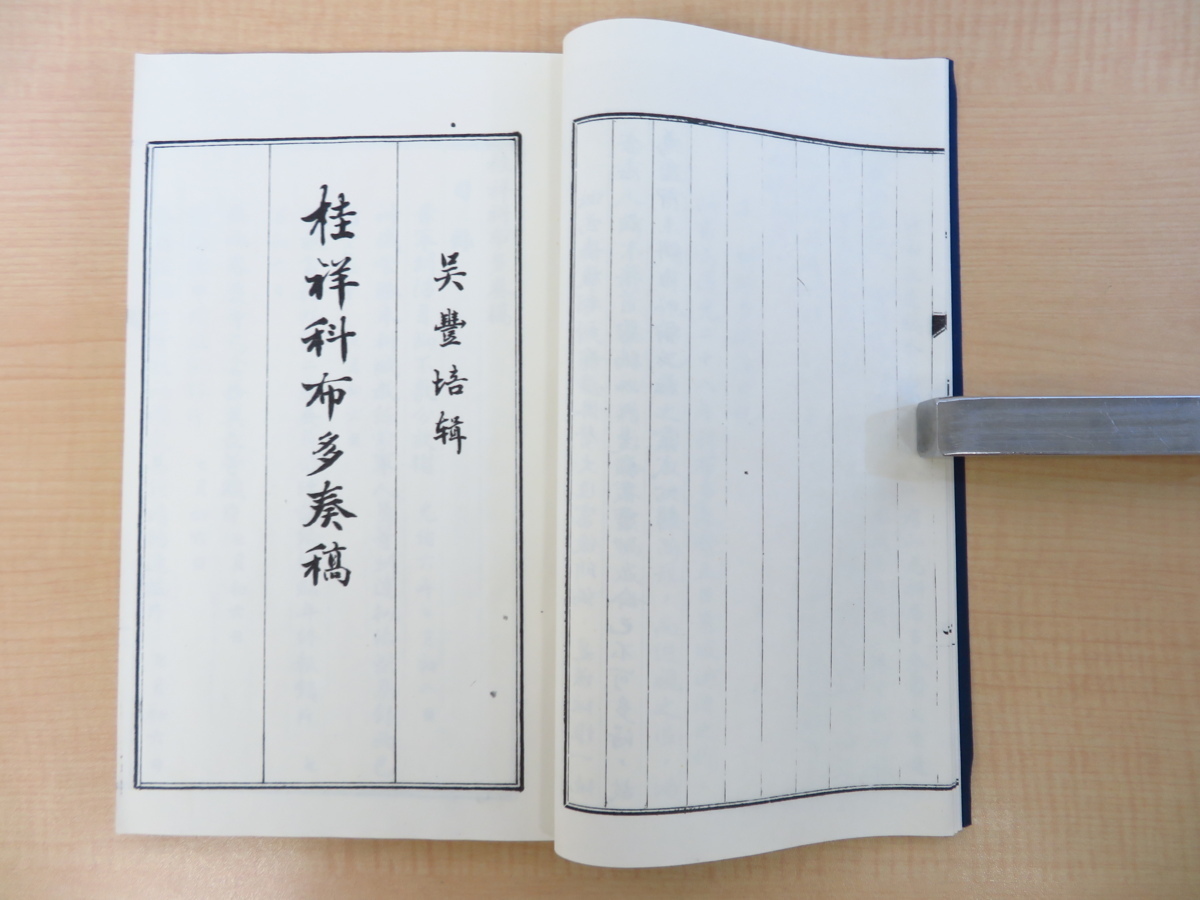 吴豐培辑
桂祥科布多奏稿